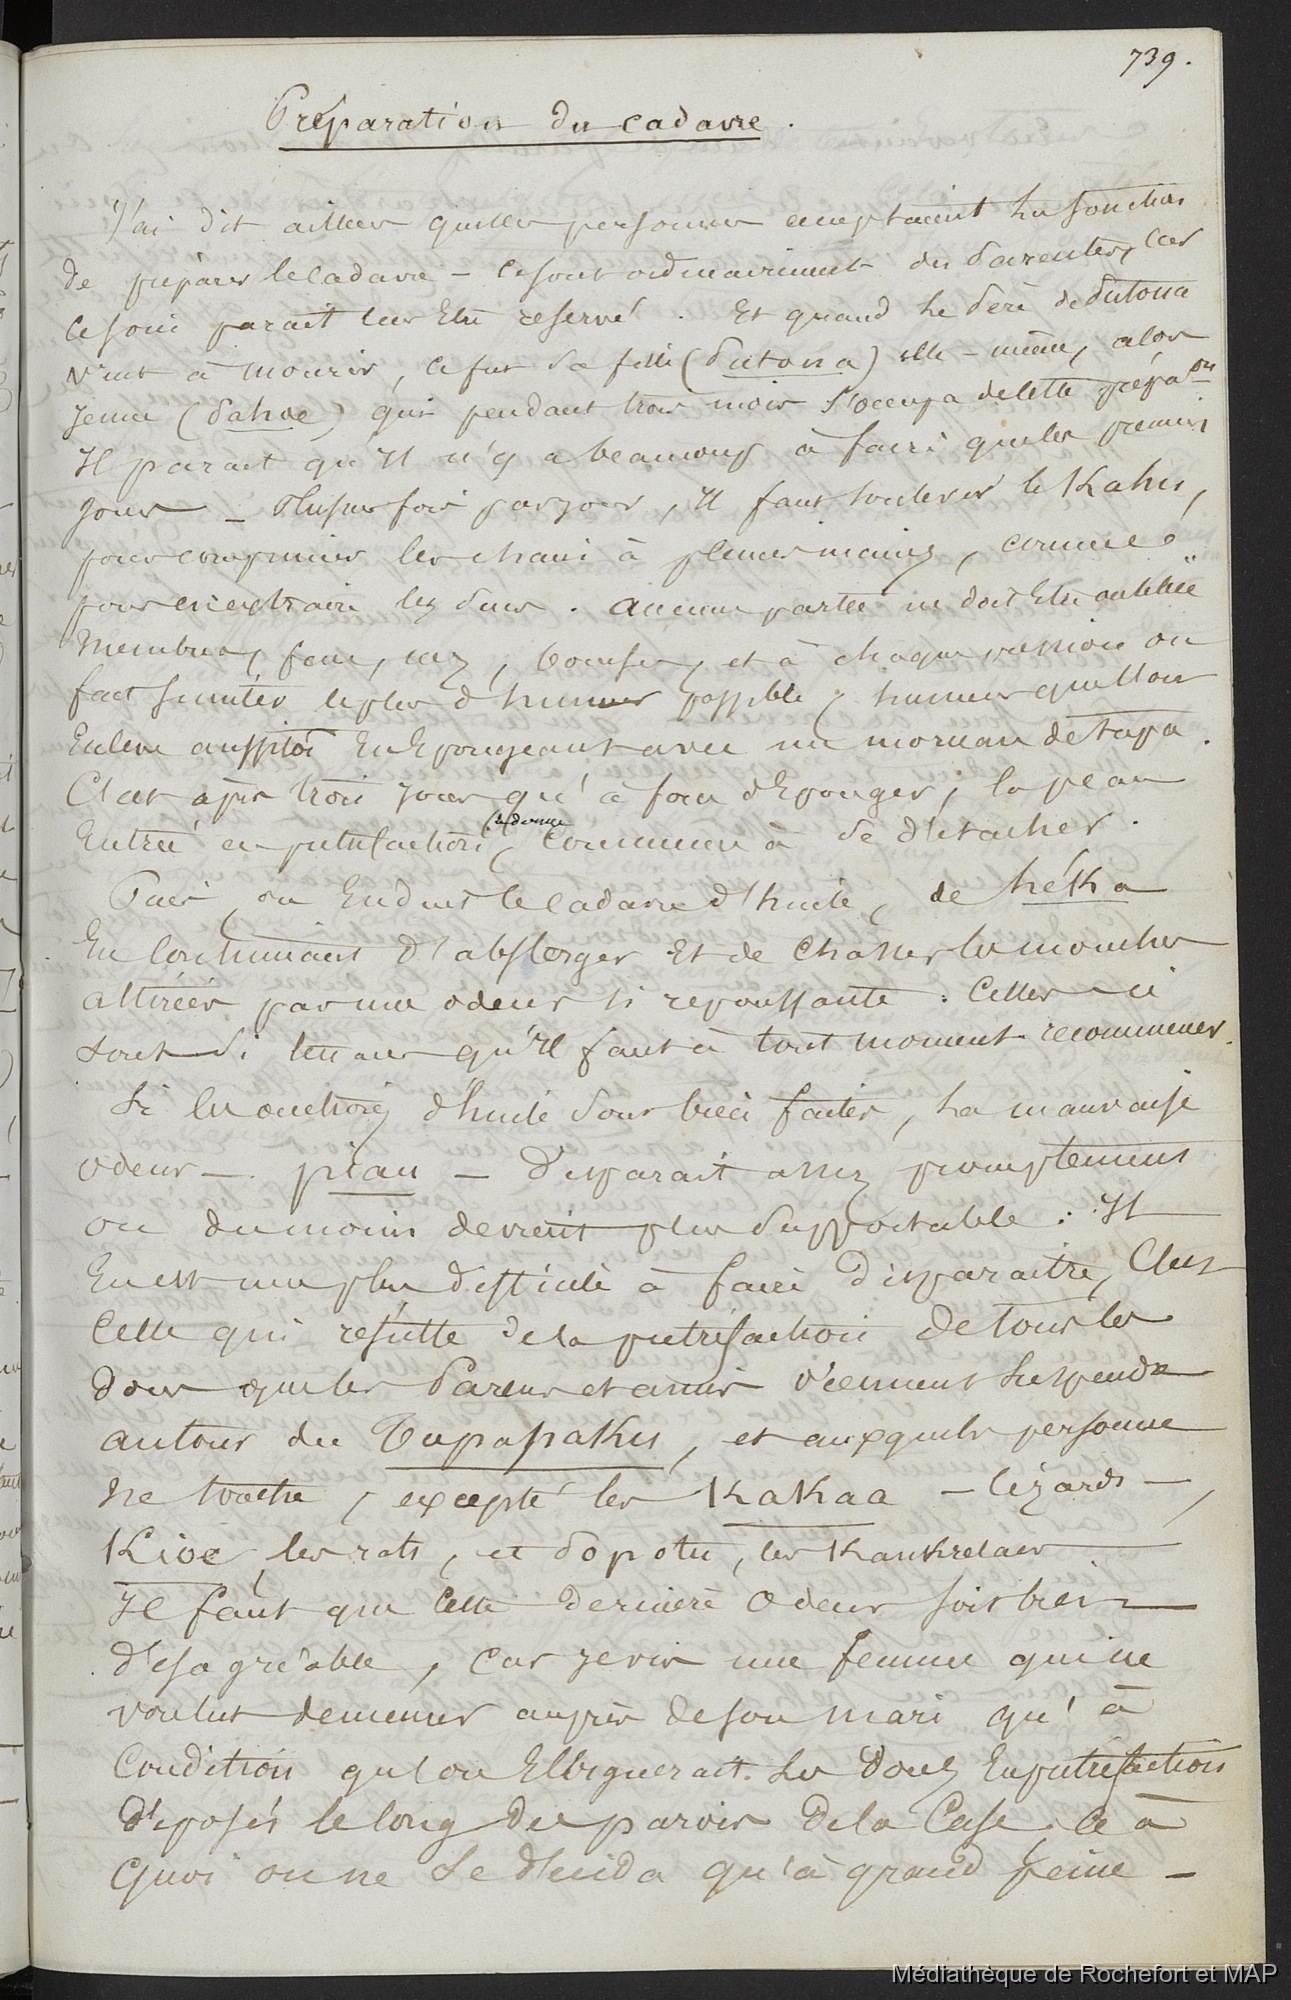 739.
Préparation du cadavre.
J'ai dit ailleurs quelles personnes acceptaient les fonctions
de préparer le cadavre – ce sont ordinairement des parentes, car
ce soin parait leur être reservé. Et quand le père de Putona
vint à mourir, ce fut sa fille (Putona) elle-même, alors
jeune (Pahoe) qui pendant trois mois s'occupa de cette prépaon
Il parait qu'Il n'y a beaucoup à faire que les premiers
jours – Plusieurs fois par jour, Il faut soulever le Kahu,
pour comprimer les chairs à pleines mains, comme
pour en extraire les sucs. aucune partie ne doit être oubliée
Membres, face, nez, bourses, et à chaque pression on
fait suinter le plus d'humeur possible, humeur que l'on
Enlève aussitôt En Epongeant avec un morceau de tapa.
C'est après trois jours qu'à force d'Eponger, la peau
Entrée en putréfaction, commence à se détacher.
Puis, on Enduit le cadavre d'huile, de héka
En continuant d'absterger Et de Chasser les mouches
attirées par une odeur si repoussante. Celles-ci
sont si tenaces qu'Il faut à tout moment recommencer.
Si les onctions d'huile sont bien faites, La mauvaise
odeur – piau – disparait assez promptement
ou du moins devient plus supportable: Il
En est une plus difficile à faire disparaitre, C'est
Celle qui résulte de la putréfaction de tous les
dons que les Parents et amis viennent suspendre
autour du Tupapaku, et auxquels personne
Ne touche, excepté les KaKaa – lézards –,
Kioe, les rats, et Popotu, les Kankrelats
Il faut que cette dernière Odeur soit bien
désagréable, Car je vis une femme qui ne
voulut demeurer auprès de son mari qu'à
Condition qu'on Eloignerait les Dons En putréfaction
déposés le long des parois de la Case, ce à
Quoi on ne se décida qu'à grand peine –
Médiathèque de Rochefort et MAP